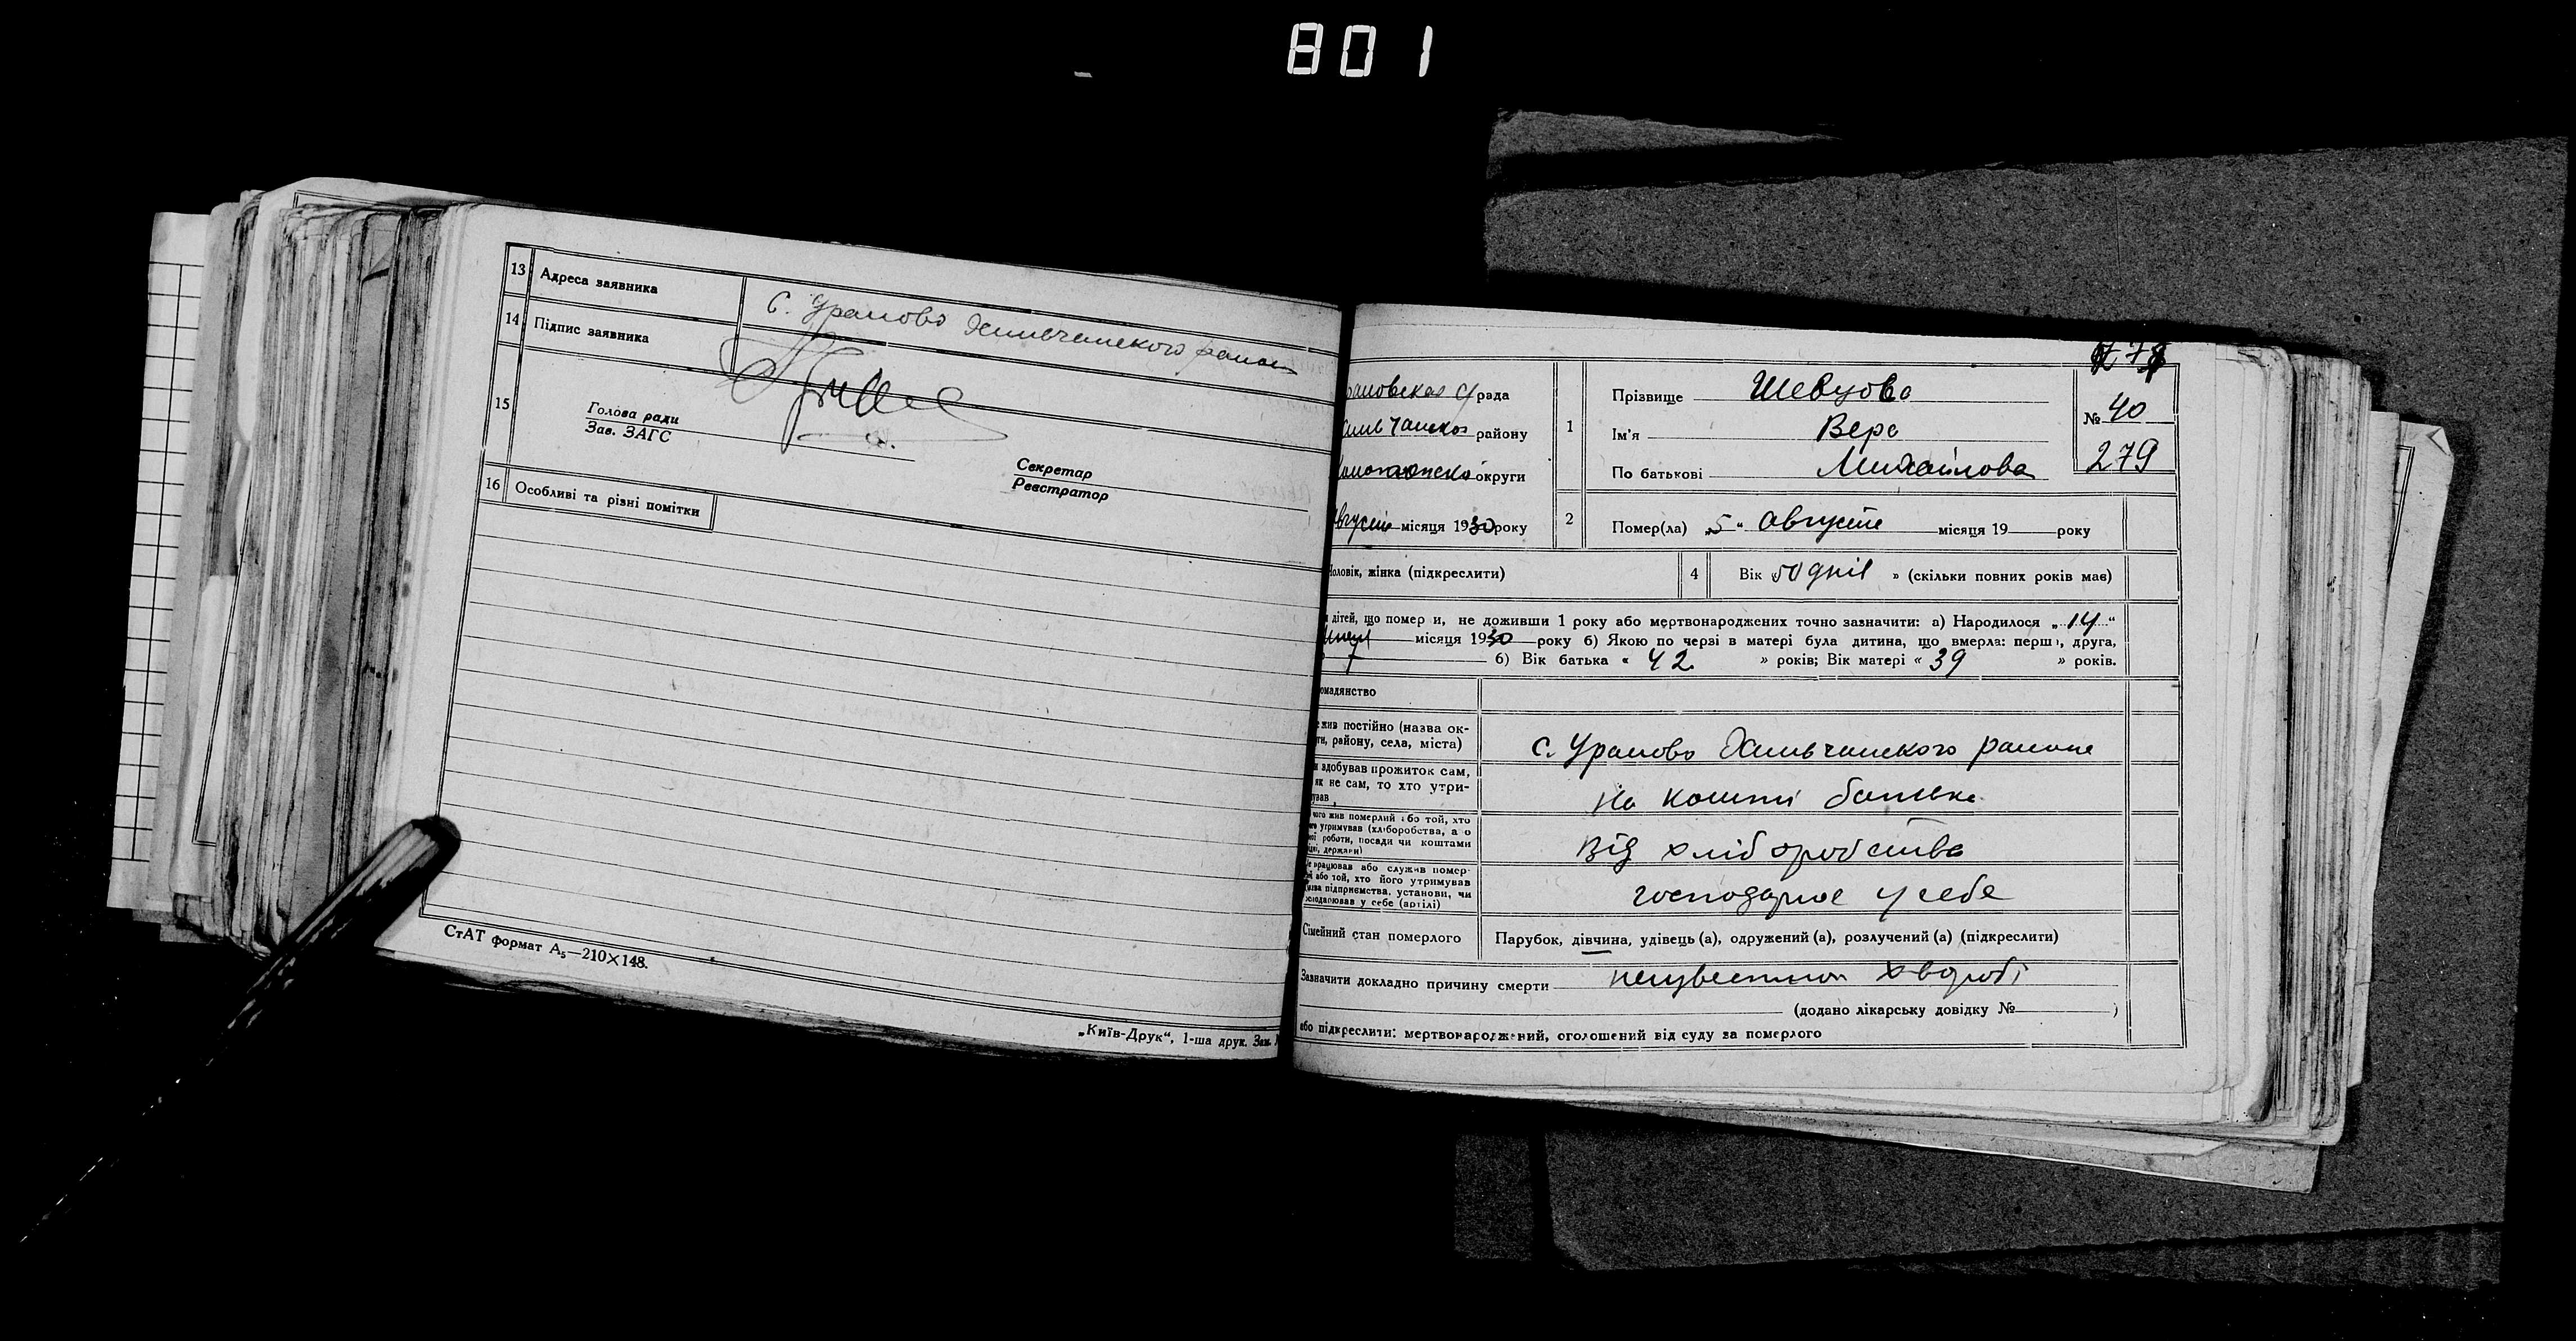 801
13 Адреса заявника
с. Уралово Хильчанского района
14 Підпис заявника
15
Голова ради
Зав. ЗАГС
Секретар
Реєстратор
16 Особливі та різні помітки
СтАТ формат А5—210×148.
„Київ-Друк“, 1-ша друк. Зам.
рада
району
округи
місяця 1930 року
1 Прізвище Шевцова
Ім'я Вера
По батькові Михайлова
№ 40
279
2 Помер(ла) „5“ августа місяця 19 року
чоловік, жінка (підкреслити)
4 Вік « 50 днів » (скільки повних років має)
дітей, що померли, не доживши 1 року або мертвонароджених точно зазначити: а) Народилося „14“
місяця 1930 року б) Якою по черзі в матері була дитина, що вмерла: перша, друга,
б) Вік батька « 42 » років; Вік матері « 39 » років.
омадянство
жив постійно (назва ок-
ги, району, села, міста)
с. Уралово Хильчанского района
здобував прожиток сам,
як не сам, то хто утри-
ував
на кошті батька
чого жив померлий або той, хто
його утримував (хліборобства, а о
роботи, посади чи коштами
держави)
від хліборобства
працював або служив помер-
або той, хто його утримував
назва підприємства, установи, чи
господарював у себе (артілі)
господарює у себе
Сімейний стан померлого
Парубок, дівчина, удівець (а), одружений (а), розлучений (а) (підкреслити)
Зазначити докладно причину смерти
хвороби
(додано лікарську довідку № )
або підкреслити: мертвонароджений, оголошений від суду за померлого